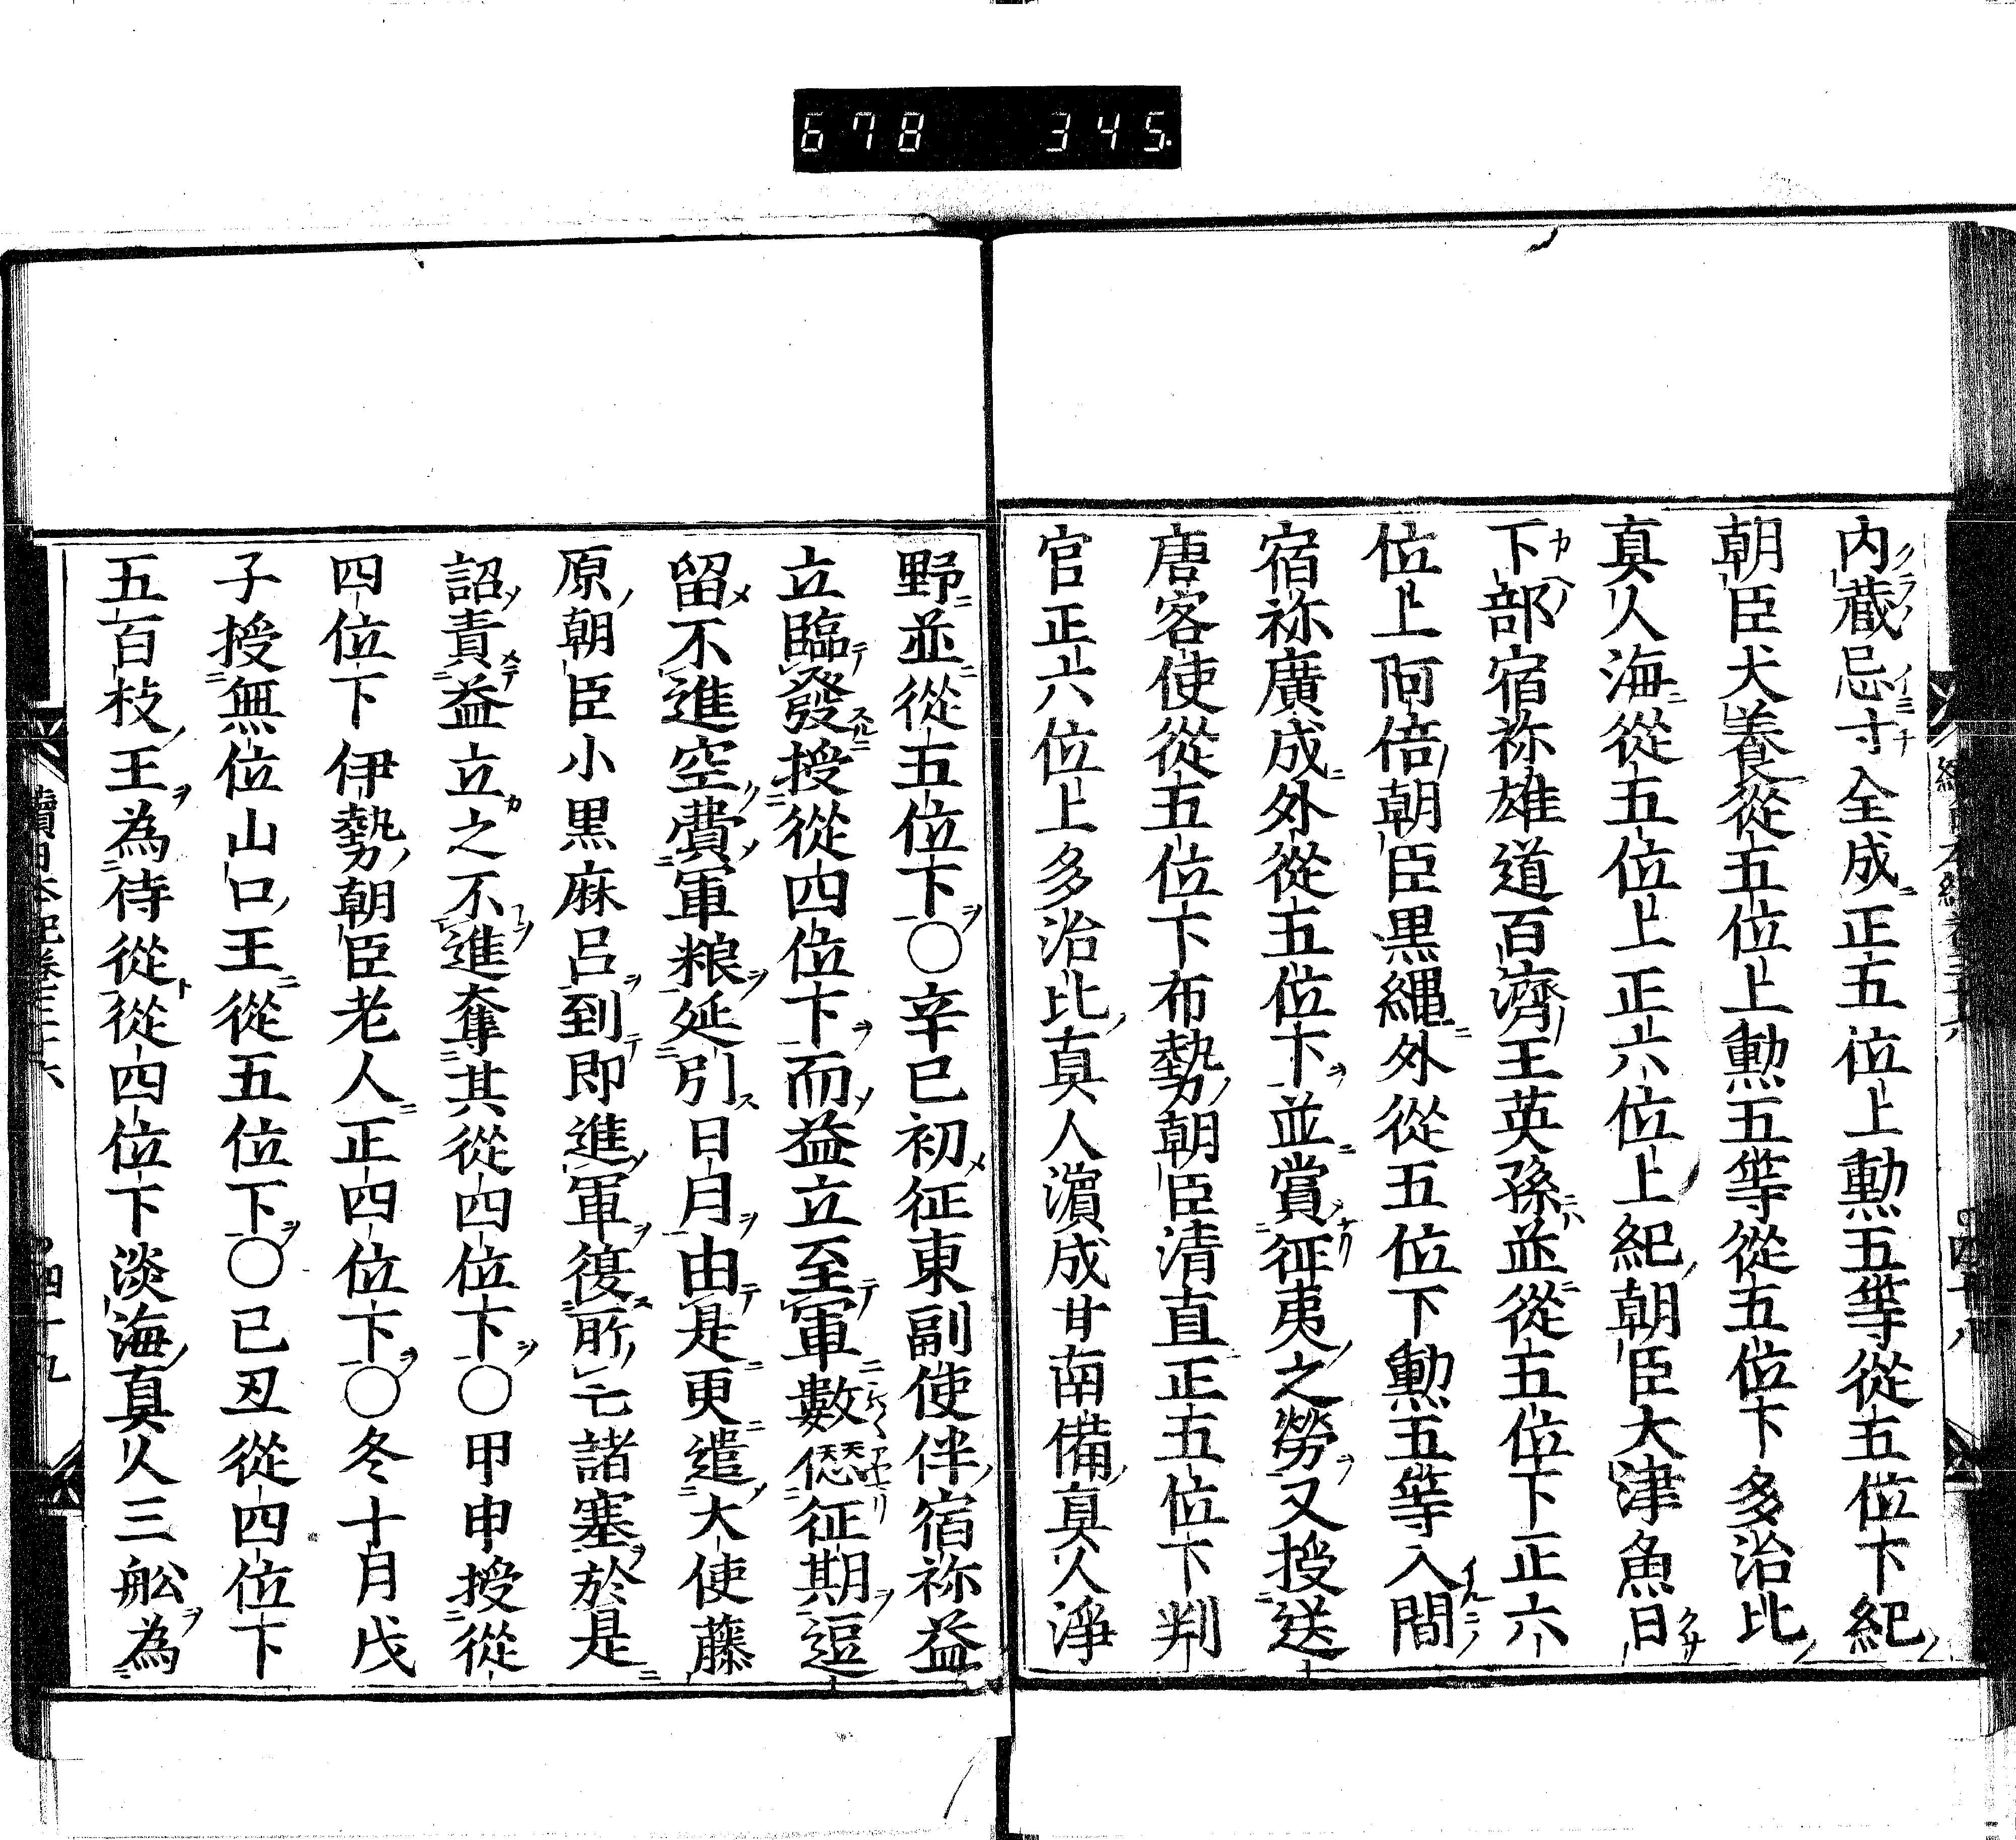 678 345
内蔵忌寸全成正五位上勲五等從五位下紀
朝臣犬養從五位上勲五等從五位下多治比
真人海從五位上正六位上紀朝臣大津魚日
下部宿祢雄道百濟王英孫並從五位下正六
位上阿倍朝臣黒縄外從五位下勲五等入間
宿祢廣成外從五位下並賞征夷之勞又授送
唐客使從五位下布勢朝臣清直正五位下判
官正六位上多治比真人濵成甘南備真人淨
野並從五位下○辛巳初征東副使伴宿祢益
立臨發授從四位下而益立至軍數愆征期逗
留不進空費軍粮延引日月由是更遣大使藤
原朝臣小黒麻呂到即進軍復所亡諸塞於是
詔責益立之不進奪其從四位下○甲申授從
四位下伊勢朝臣老人正四位下○冬十月戊
子授無位山口王從五位下○已丑從四位下
五百枝王為侍從從四位下淡海真人三舩為
續日本紀卷三十六
四十九